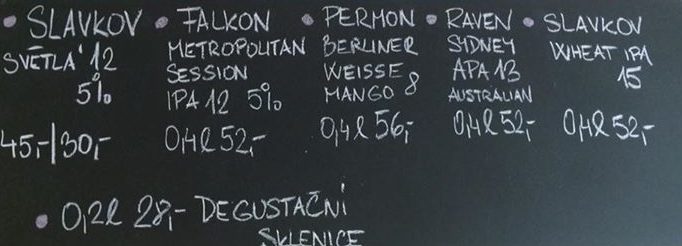 SLAVKOV
SVĚTLÁ 12
5%
45,-|30,-
FALKON
METROPOLITAN
SESSION
IPA 12 5%
0,4l 52,-
PERMON
BERLINER
WEISSE
MANGO 8
0,4l 56,-
RAVEN
SYDNEY
APA 13
AUSTRALIAN
0,4l 52,-
SLAVKOV
WHEAT IPA
15
0,4l 52,-
0,2l 28,- DEGUSTAČNÍ
SKLENICE